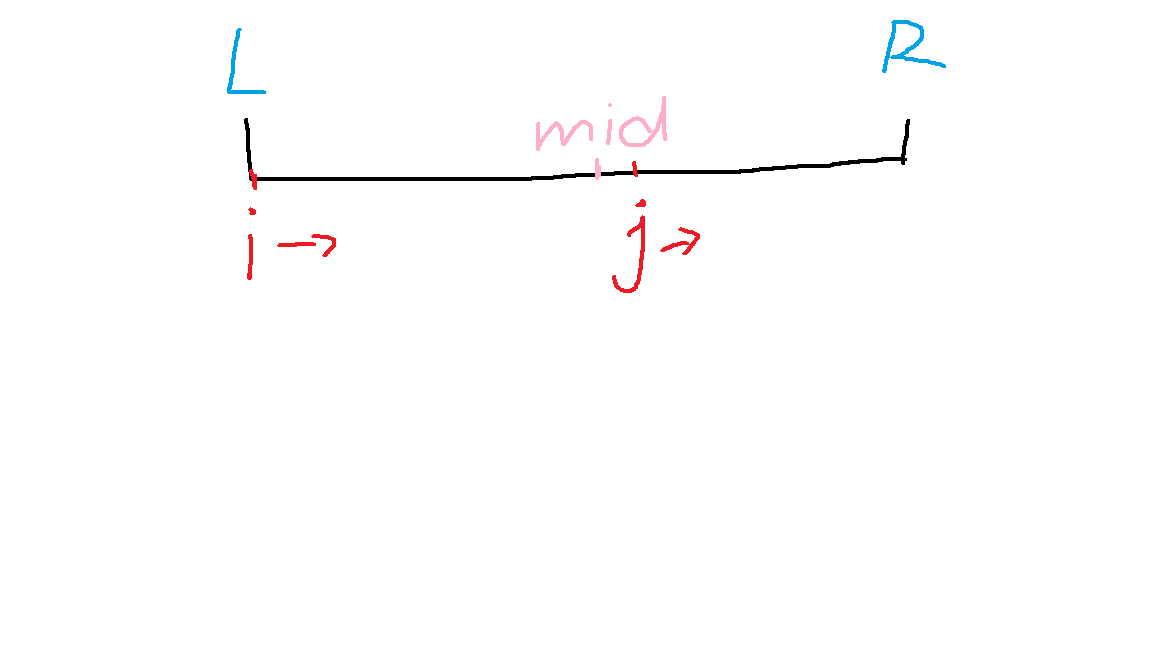 L R
mid
i → j →